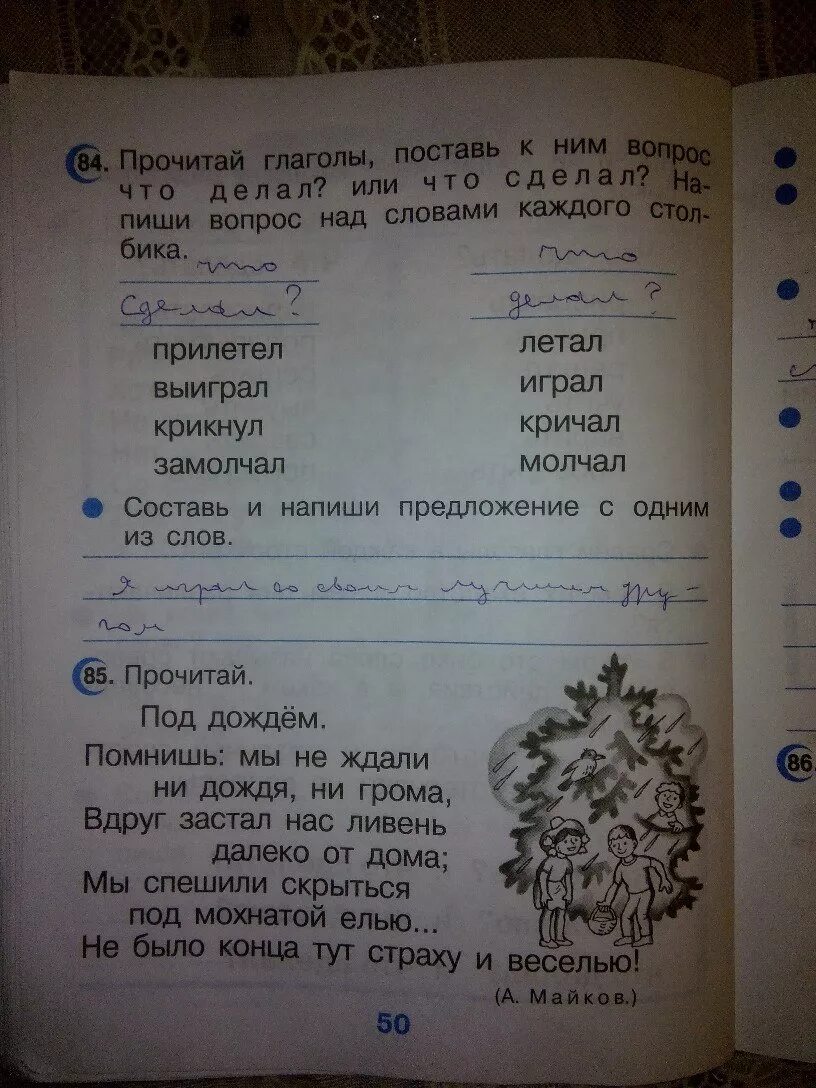 84. Прочитай глаголы, поставь к ним вопрос
что делал? или что сделал? На-
пиши вопрос над словами каждого стол-
бика.
что
сделал?
прилетел
выиграл
крикнул
замолчал
что
делал?
летал
играл
кричал
молчал
Составь и напиши предложение с одним
из слов.
Я играл со своим лучшим дру-
гом
85. Прочитай.
Под дождём.
Помнишь: мы не ждали
ни дождя, ни грома,
Вдруг застал нас ливень
далеко от дома;
Мы спешили скрыться
под мохнатой елью...
Не было конца тут страху и веселью!
(А. Майков.)
50
86.